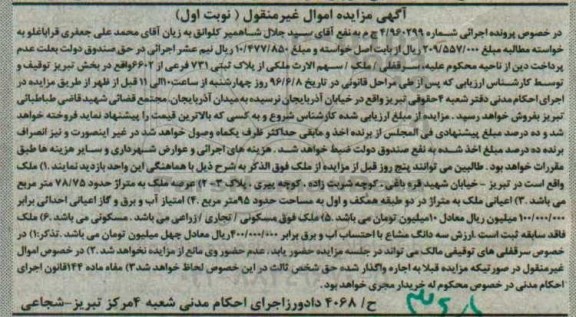 آگهی مزایده اموال غیرمنقول ( نوبت اول)
در خصوص پرونده اجرائی شماره ۴/۹۶۰۲۹۹ ج م به نفع آقای سید جلال شاهمیر کلوانق به زیان آقای محمد علی جعفری قراباغلو به
خواسته مطالبه مبلغ ۲۰۹/۵۵۷/۰۰۰ ریال از بابت اصل خواسته و مبلغ ۱۰/۴۷۷/۸۵۰ ریال نیم عشر اجرائی در حق صندوق دولت بعلت عدم
پرداخت دین از ناحیه محکوم علیه، سرقفلی / ملک / سهم الارث ملکی از پلاک ثبتی ۷۳۱ فرعی از ۶۶۰۲واقع در بخش تبریز توقیف و
توسط کارشناس ارزیابی که پس از طی مراحل قانونی در تاریخ ۹۶/۶/۸ روز چهارشنبه از ساعت۱۰الی ۱۱ قبل از ظهر از طریق مزایده در
اجرای احکام مدنی دفتر شعبه ۴حقوقی تبریز واقع در خیابان آذربایجان نرسیده به میدان آذربایجان، مجتمع قضائی شهیدقاضی طباطبائی
تبریز بفروش خواهد رسید . مزایده از مبلغ ارزیابی شده کارشناس شروع و به کسی که بالاترین قیمت را پیشنهاد نماید فروخته خواهد
شد و ده درصد مبلغ پیشنهادی فی المجلس از برنده اخذ و مابقی حداکثر ظرف یکماه وصول خواهد شد در غیر اینصورت و نیز انصراف
برنده ده درصد مبلغ اخذ شده به نفع صندوق دولت ضبط خواهد شد . هزینه های اجرائی و عوارض شهرداری و سایر هزینه ها طبق
مقررات خواهد بود. طالبین می توانند پنج روز قبل از مزایده از ملک فوق الذکر به شرح ذیل با هماهنگی این واحد بازدید نمایند. ۱) ملک
واقع است در تبریز – خیابان شهید قره باغی . کوچه شربت زاده . کوچه پیری . پلاک ۲۰۰ ۲) عرصه ملک به متراژ حدود ۷۸/۷۵ متر مربع
می باشد .۳) اعیانی ملک به متراژ در دو طبقه همکف و اول به مساحت حدود ۹۵متر مربع .۴) امتیاز آب و برق و گاز اعیانی احداثی برابر
۱۰۰/۰۰۰/۰۰۰ میلیون ریال معادل ۱۰میلیون تومان می باشد. ۵) ملک فوق مسکونی / تجاری / زراعی می باشد. مسکونی می باشد .۶) ملک
فاقد سابقه ثبت است .ارزش سه دانگ مشاع با احتساب آب و برق برابر ۴۰۰/۰۰۰/۰۰۰ریال معادل چهل میلیون تومان می باشد. تذکر:۱) در
خصوص سرقفلی های توقیفی مالک می تواند در جلسه مزایده حضور یابد. عدم حضور وی مانع از مزایده نخواهد شد .۲) در خصوص اموال
غیرمنقول در صورتیکه مزایده قبلا به اجاره واگذار شده حق شخص ثالث در این خصوص لحاظ خواهد شد۳) مفاد ماده ۱۴۴قانون اجرای
احکام مدنی در خصوص محکوم له خریدار مجری خواهد بود.
ح/ ۴۰۶۸ دادورزاجرای احکام مدنی شعبه ۴مرکز تبریز-شجاعی